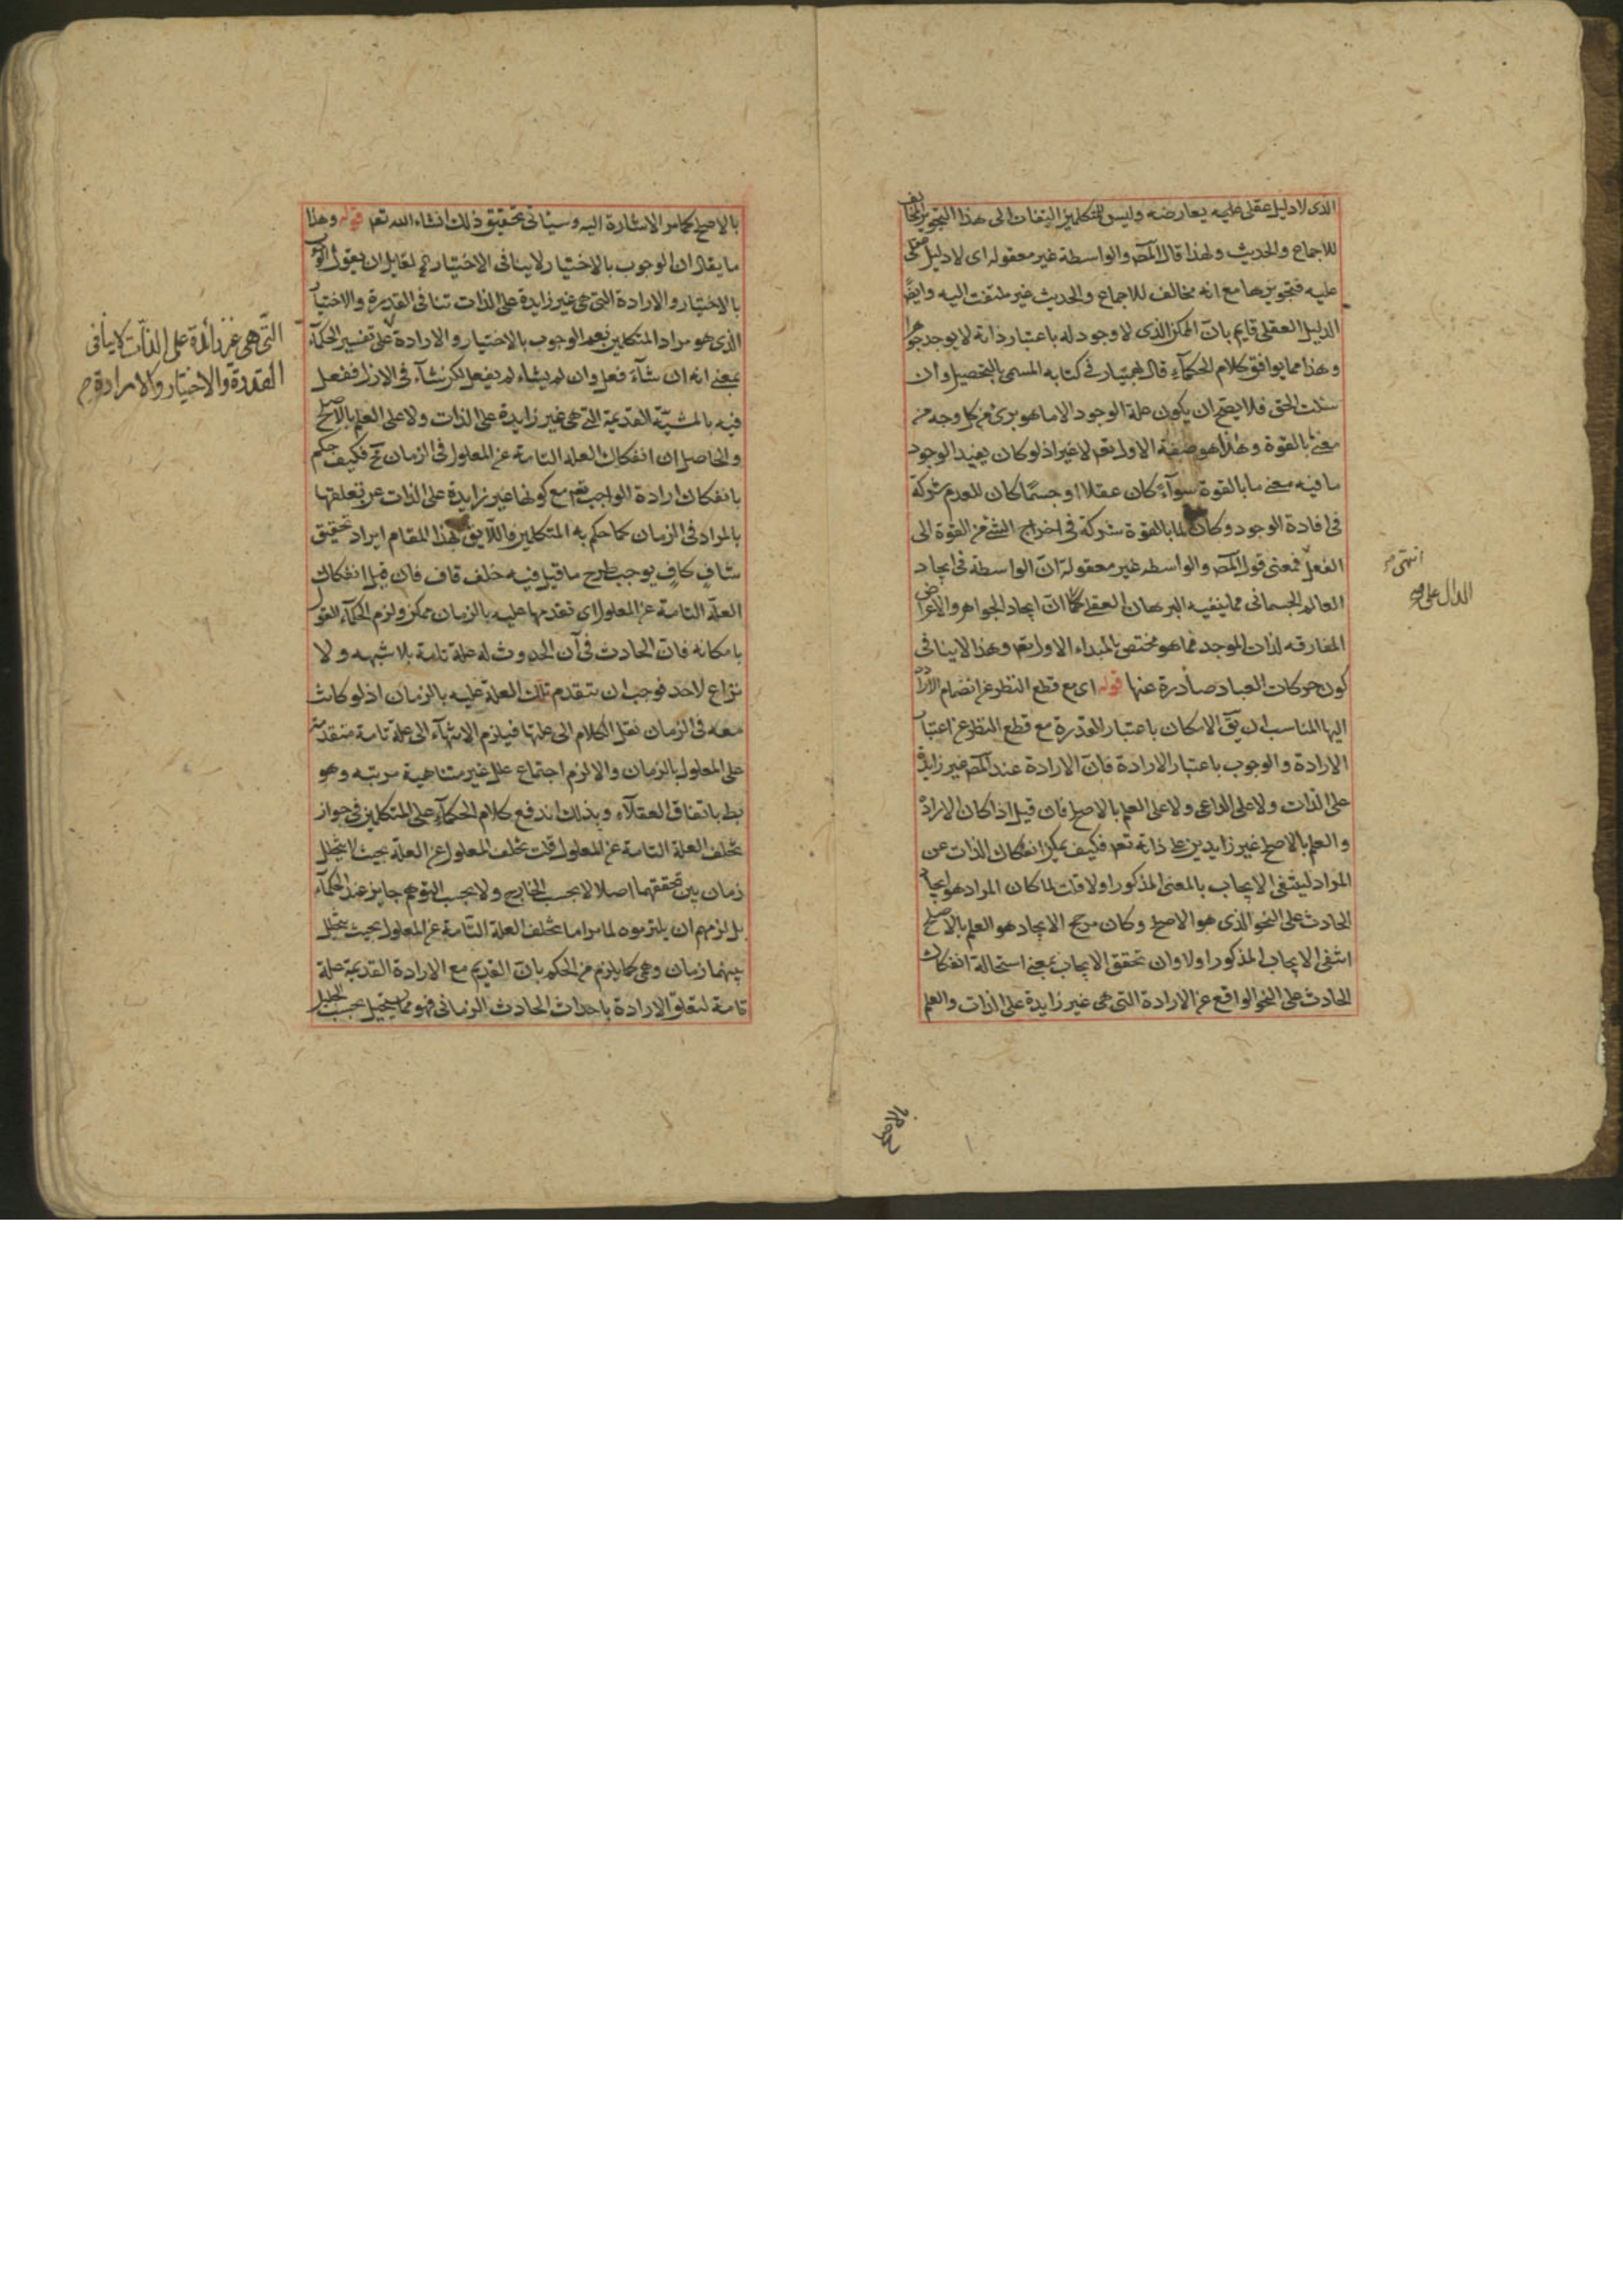 الذى لا دليل عقلى عليه يعارضه وليس للمتكلمين التفات الى هذا التجويز المخالف
للاجماع والحديث ولهذا قال المصـ والواسطة غير معقوله اى لا دليل عقلى
عليه فتجويزها مع انه مخالف للاجماع والحديث غير ملتفت اليه وايضًا
الدليل العقلى قايم بان الممكن الذى لا وجود له باعتبار ذاته لا يوجد جوهرا
وهذا مما يوافق كلام الحكمآء قال بهمنيار فى كتابه المسمى بالتحصيل وان
سئلت الحق فلا يصح ان يكون علة الوجود الا ما هو برئ من كل وجه من
معنى ما بالقوة وهذا هو صفة الاول تعـ لا غير اذ لو كان يفيد الوجود
ما فيه معنى ما بالقوة سوآء كان عقلا او جسمًا كان للعدم شركة
فى افادة الوجود وكان لما بالقوة شركة فى اخراج الشئ من القوة الى
الفعل فمعنى قول المصـ والواسطه غير معقولة ان الواسطة فى ايجاد
العالم الجسمانى مما ينفيه البرهان العقلى كما ان ايجاد الجواهر والاعراض
المفارقه لذات الموجد مما هو مختص بالمبداء الاول تعـ وهذا لا ينافى
كون حركات العباد صادرة عنها قوله اى مع قطع النظر عن انضمام الارادة
اليها المناسب ان يق الامكان باعتبار القدرة مع قطع النظر عن اعتبار
الارادة والوجوب باعتبار الارادة فان الارادة عند المصـ غير زايدة
على الذات ولا على الداعى ولا على العلم بالاصلح فان قيل اذا كان الارادة
والعلم بالاصلح غير زايدين على ذاته تعـ فكيف يمكن انفكاك الذات عن
المراد لينتفى الايجاب بالمعنى المذكور اولا قلت لما كان المراد هو ايجاد
الحادث على النحو الذى هو الاصلح وكان مرجح الايجاد هو العلم بالاصلح
انتفى الايجاب المذكور اولا وان تحقق الايجاب بمعنى استحالة انفكاك
الحادث على النحو الواقع عن الارادة التى هى غير زايدة على الذات والعلم
انتهى صح
الدال على
بالاصلح كما مر الاشارة اليه وسيأتى تحقيق ذلك انشاء الله تعـ قوله وهذا
ما يقال ان الوجوب بالاختيار لا ينافى الاختيار لقايل ان يقول الوجوب
بالاختيار والارادة التى هى غير زايدة على الذات تنافى القدرة والاختيار
الذى هو مراد المتكلمين نعم الوجوب بالاختيار والارادة على تفسير الحكمآء
بمعنى انه ان شآء فعل وان لم يشاء لم يفعل لكن شآء فى الازل ففعل
فيه بالمشيّة القديمة التى هى غير زايدة على الذات ولا على العلم بالاصلح
والحاصل ان انفكاك العلة التامة عن المعلول فى الزمان مح فكيف حكم
بانفكاك ارادة الواجب تعـ مع كونها غير زايدة على الذات عن تعلقها
بالمراد فى الزمان كما حكم به المتكلمين واللايق بهذا المقام ايراد تحقيق
شافٍ كافٍ يوجب طرح ما قيل فيه خلف قاف فان قيل انفكاك
العلة التامة عن المعلول اى تقدمها عليه بالزمان ممكن ولزم الحكمآء القول
بامكانه فان الحادث فى آن الحدوث له علة تامة بلا شبهه ولا
نزاع لاحد فوجب ان يتقدم تلك العلة عليه بالزمان اذ لو كانت
معه فى الزمان نقل الكلام الى علتها فيلزم الانتهآء الى علة تامة متقدمة
على المعلول بالزمان والا لزم اجتماع علل غير متناهية مرتبه وهو
بط باتفاق العقلآء وبذلك اندفع كلام الحكمآء على المتكلمين فى جواز
تخلف العلة التامة عن المعلول قلت تخلف المعلول عن العلة بحيث لا يتخلل
زمان بين تحققهما اصلا لا بحسب الخارج ولا بحسب التوهم جايز عند الحكمآء
بل لزمهم ان يلتزموه لما مر اما تخلف العلة التامة عن المعلول بحيث يتخلل
بينهما زمان وهمى كما يلزم من الحكم بان القديم مع الارادة القديمة علة
تامة لتعلق الارادة باحداث الحادث الزمانى فهو مما يستحيل بحسب الجليل
التى هى غير زائدة على الذات لا ينافى
القدرة والاختيار والارادة صح